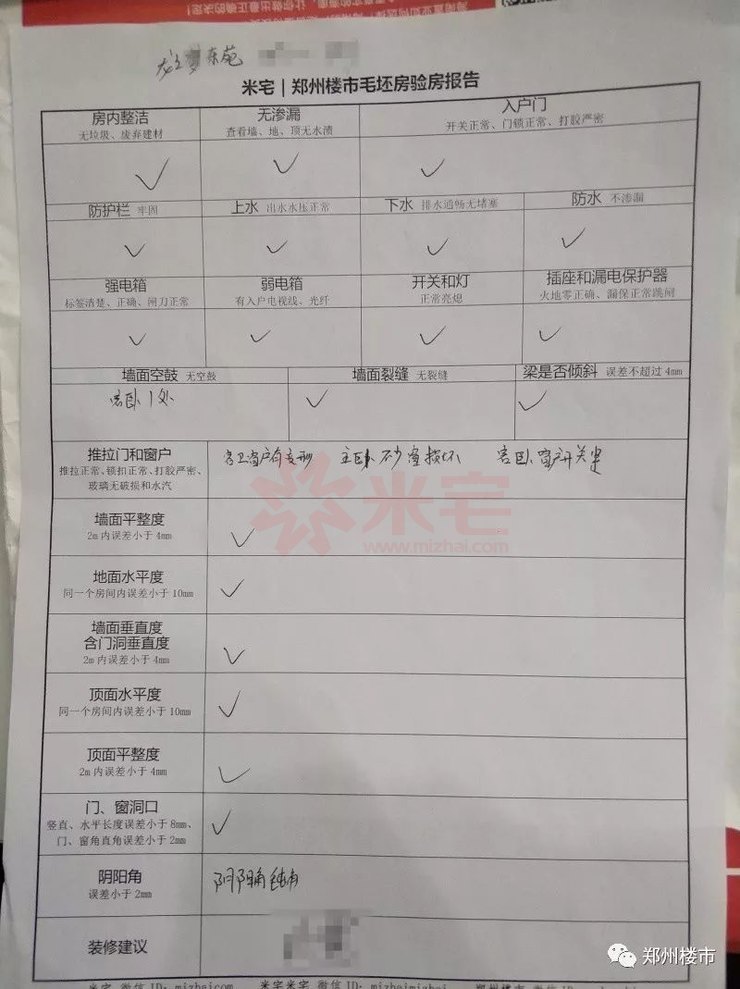 东苑
米宅｜郑州楼市毛坯房验房报告
房内整洁
无垃圾、废弃建材
无渗漏
查看墙、地、顶无水渍
入户门
开关正常、门锁正常、打胶严密
防护栏 牢固
上水 出水水压正常
下水 排水通畅无堵塞
防水 不渗漏
强电箱
标签清楚、正确、闸刀正常
弱电箱
有入户电视线、光纤
开关和灯
正常亮熄
插座和漏电保护器
火地零正确、漏保正常跳闸
墙面空鼓 无空鼓
墙面裂缝 无裂缝
梁是否倾斜 误差不超过4mm
客卧1处
推拉门和窗户
推拉正常、锁扣正常、打胶严密、
玻璃无破损和水汽
客卫窗户有变形 主卧 纱窗损坏 客卧窗户开关
米宅
www.mizhai.com
墙面平整度
2m内误差小于4mm
地面水平度
同一个房间内误差小于10mm
墙面垂直度
含门洞垂直度
2m内误差小于4mm
顶面水平度
同一个房间内误差小于10mm
顶面平整度
2m内误差小于4mm
门、窗洞口
竖直、水平长度误差小于8mm、
门、窗角直角误差小于2mm
阴阳角
误差小于2mm
阴阳角
装修建议
郑州楼市
米宅 微信ID:mizhaicom 米宅米宅 微信ID:mizhaimizhai 郑州楼市 微信ID: